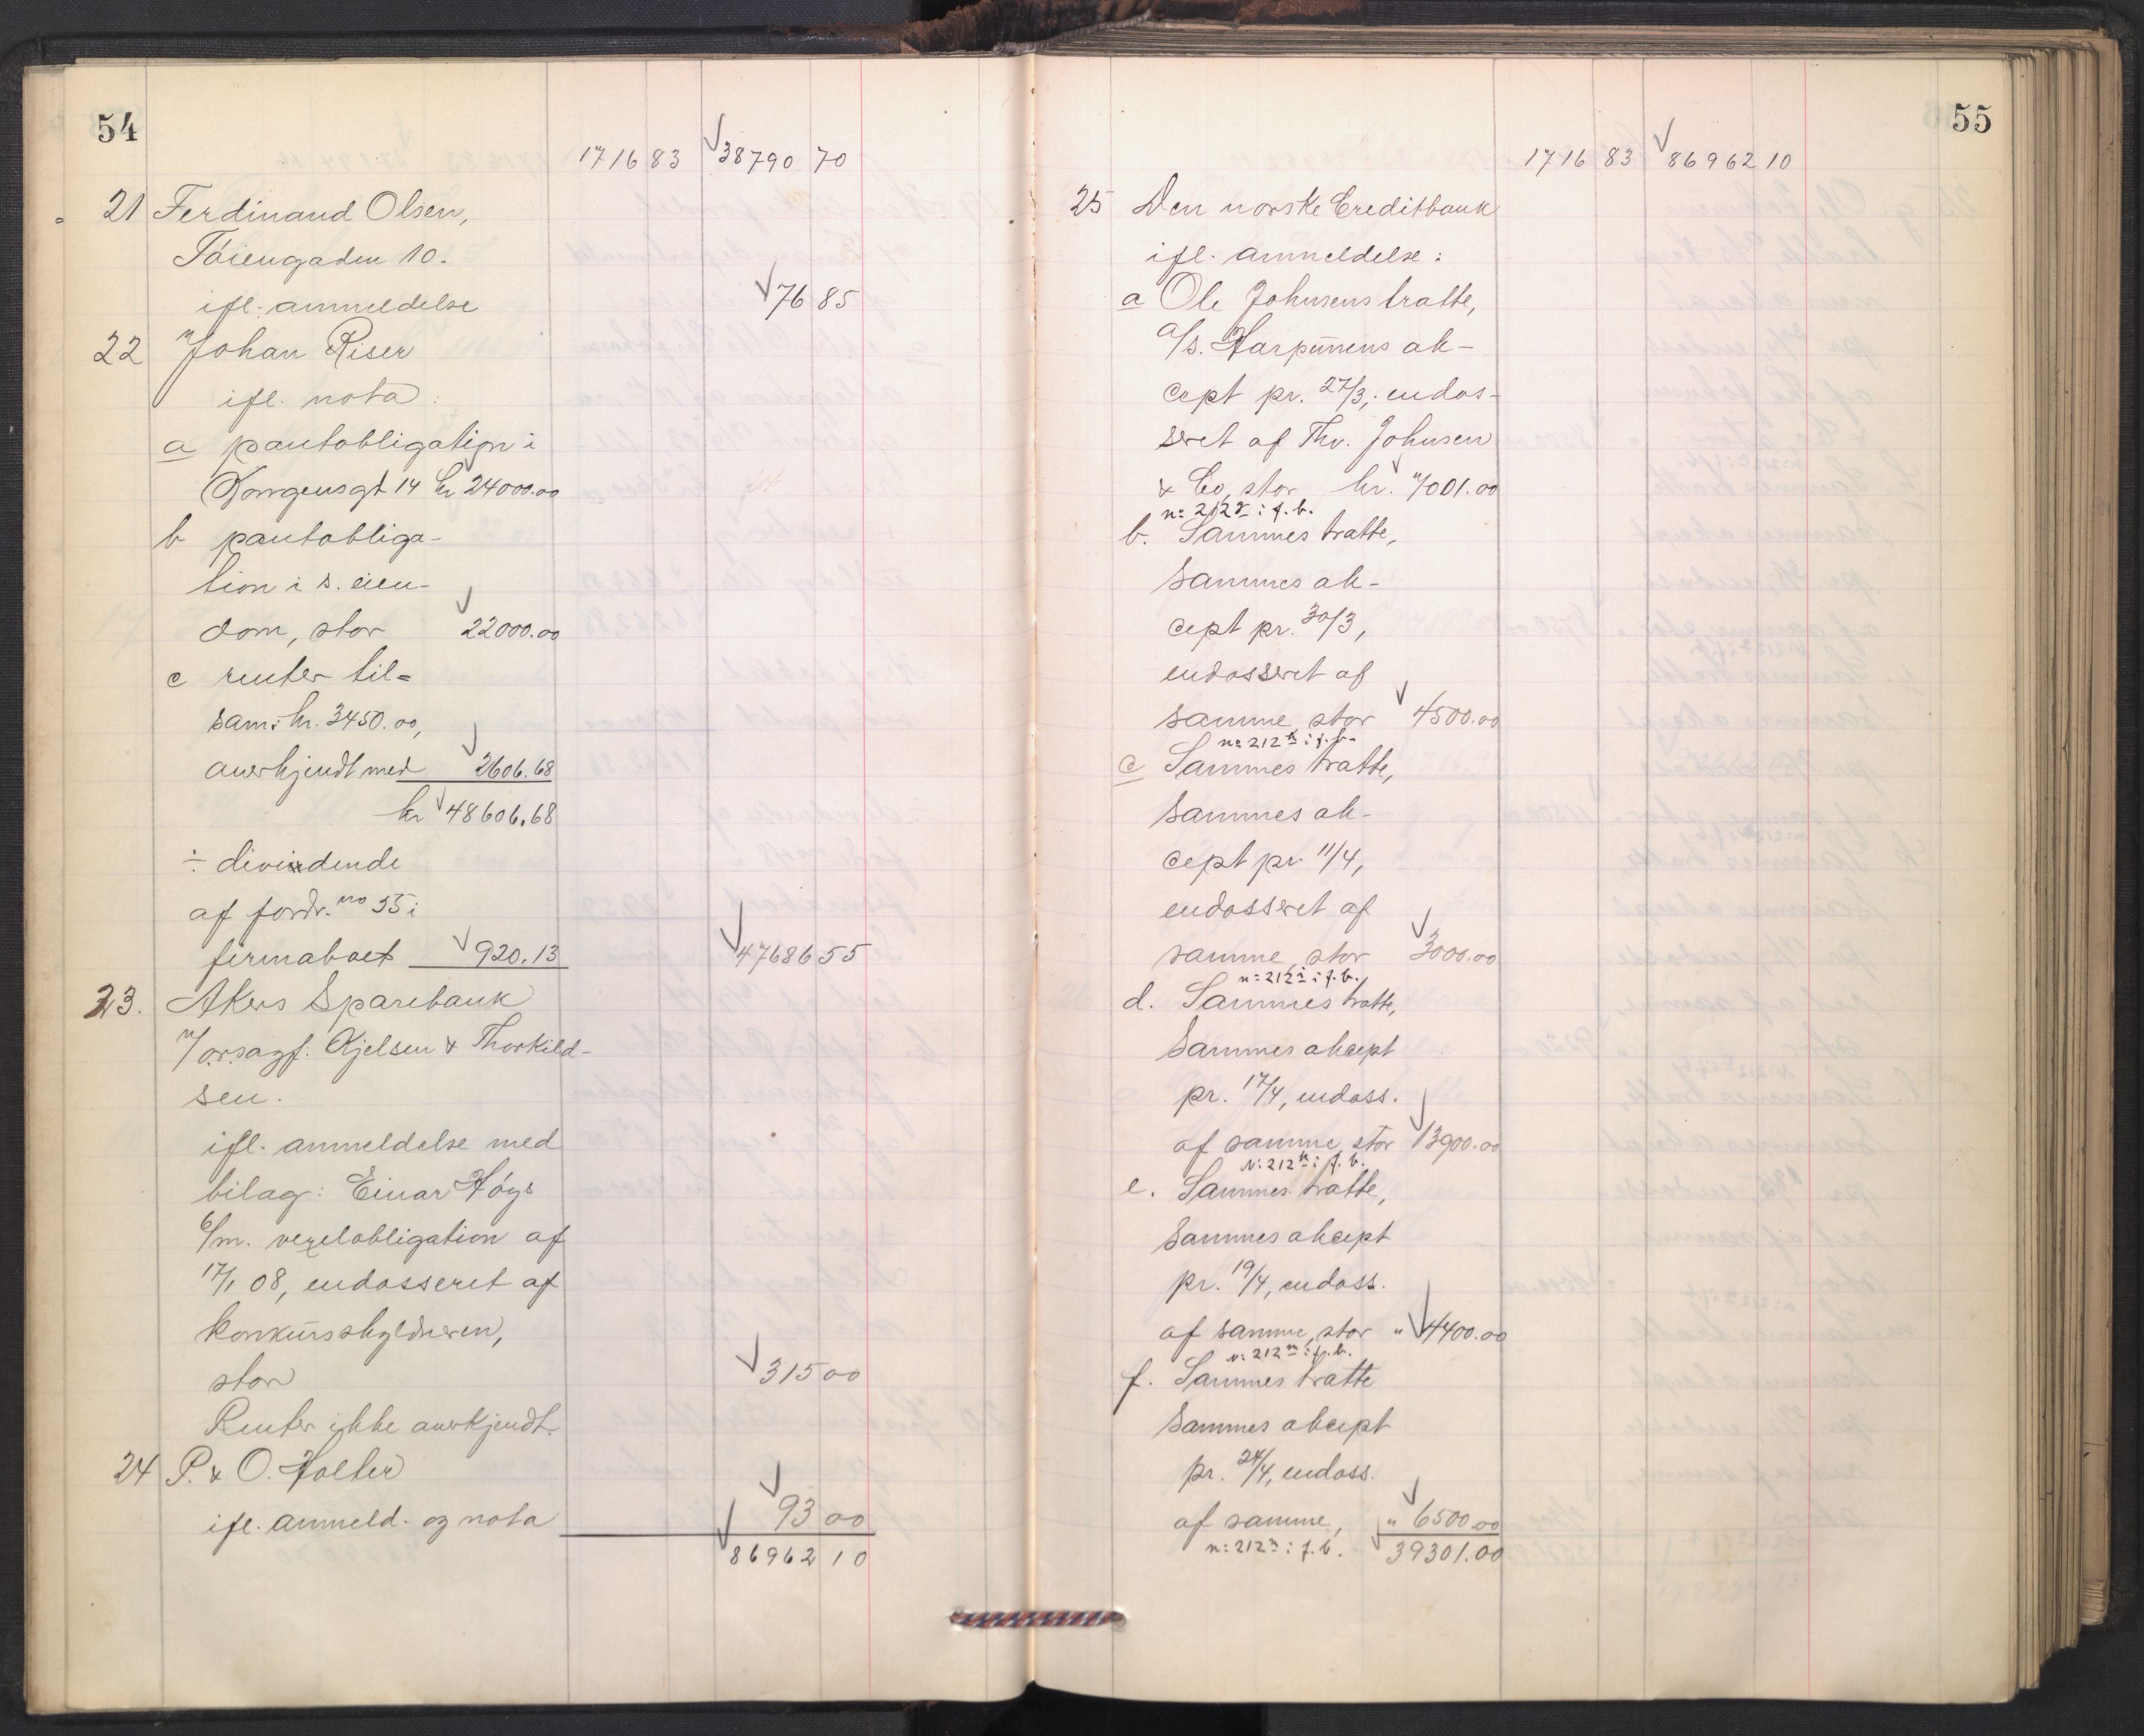 54
1716 83 38790 70
21 Ferdinand Olsen,
Tøiengaden 10.
ifl. anmeldelse 76 85
22 Johan Riser
ifl. nota:
a pantobligation i
Kongensgt 14 kr 24000.00
b pantobliga-
tion i s. eien-
dom, stor 22000.00
c renter til=
sam: kr. 3450.00,
anerkjendt med 2606.68
kr 48606.68
÷ dividende
af fordr. no 35 i
firmaboet 920.13 47686 55
23. Akers Sparebank
v/ orsagf. Kjelsen & Thorkild-
sen.
ifl. anmeldelse med
bilag: Einar Høys
6/m. vexelobligation af
17/1 08, endosseret af
konkursskyldneren,
stor 315 00
Renter ikke anerkjendt.
24 P. & O. Holter
ifl. anmeld. og nota 93 00
86962 10
55
1716 83 86962 10
25 Den norske Creditbank
ifl. anmeldelse:
a Ole Johnsens tratte,
A/S. Harpunens ak-
cept pr. 27/3, endos-
seret af Thv. Johnsen
& Co, stor kr. 7001.00
no 212 i f. b.
b. Sammes tratte,
sammes ak-
cept pr. 30/3,
endosseret af
samme, stor 4500.00
no 212 h i f. b.
c Sammes tratte,
sammes ak-
cept pr. 11/4,
endosseret af
samme, stor 3000.00
no 212 i i f. b.
d. Sammes tratte,
Sammes akcept
pr. 17/4, endoss.
af samme, stor 13900.00
N: 212 k i f. b.
e. Sammes tratte,
Sammes akcept
pr. 19/4, endoss.
af samme, stor " 4400.00
N: 212 m i f. b.
f. Sammes tratte
Sammes akcept
pr. 24/4, endoss.
af samme, " 6500.00
n: 212 i f. b. 39301.00